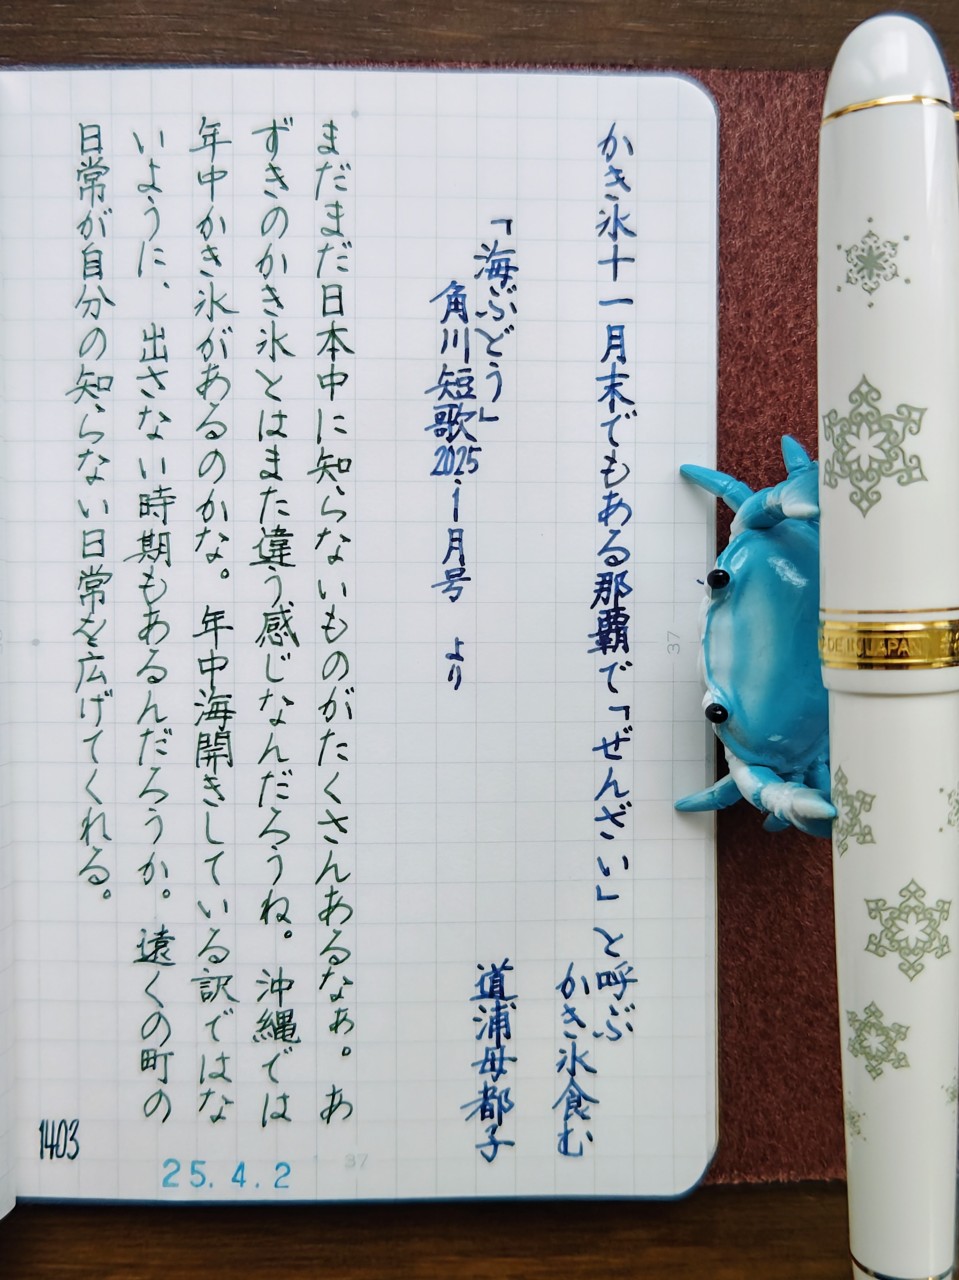 かき氷十一月末でもある那覇で「ぜんざい」と呼ぶ
かき氷食む
「海ぶどう」
道浦母都子
角川短歌2025・1月号 より
まだまだ日本中に知らないものがたくさんあるなぁ。あ
ずきのかき氷とはまた違う感じなんだろうね。沖縄では
年中かき氷があるのかな。年中海開きしている訳ではな
いように、出さない時期もあるんだろうか。遠くの町の
日常が自分の知らない日常を広げてくれる。
1403
25.4.2
37
37
DE IN JAPAN